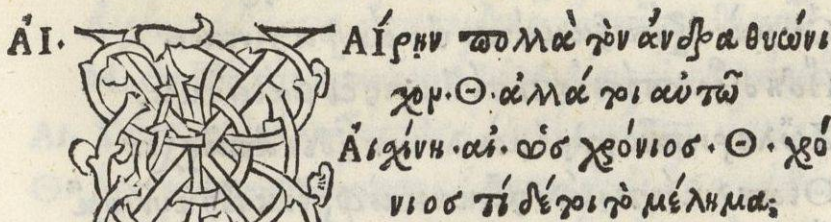 ΑΙ. ΧΑΊρην πολλὰ τὸν ἄνδρα θυώνι
χον·Θ·ἀλλά τοι αὐτῶ
Αἰσχίνη·αἰ·ὡς χρόνιος·Θ·χρό
νιος τί δέ τοι τὸ μέλημα;